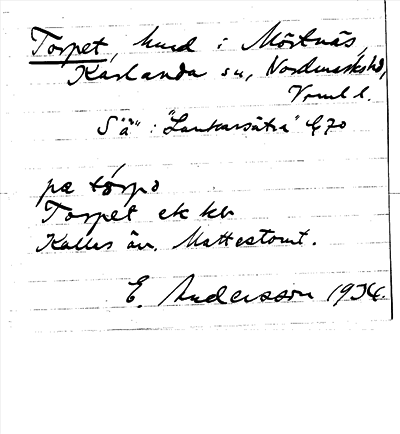 Torpet, hmd i Mörtnäs,
Karlanda sn, Nordmarks hd,
Vrml l.
S "ä" : "Lankarsätra" G 70
pœ tǿrpə
Torpet ek kb
Kallas äv. Mattestomt.
E. Andersson 1934.